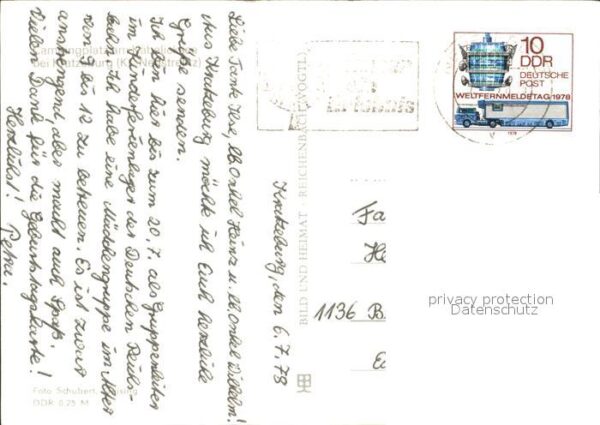 Kratzeburg, den 6.7.78
Liebe Tante Ilse, lb. Onkel Heinz u. lb. Onkel Wilhelm!
Aus Kratzeburg möchte ich Euch herzliche
Grüße senden.
Ich bin hier bis zum 20.7. als Gruppenleiter
im Kinderferienlager der Deutschen Reichs-
bahn. Ich habe eine Mädchengruppe im Alter
von 9 bis 12 zu betreuen. Es ist zwar
anstrengend, aber macht auch Spaß.
Vielen Dank für die Geburtstagskarte!
Herzlichst! Petra.
bei Kratzeburg (Kr. Neustrelitz)
Foto Schubert,
DDR 0,25 M
BILD UND HEIMAT · REICHENBACH (VOGTL)
10
DDR
DEUTSCHE
POST
WELTFERNMELDETAG 1978
1978
Fa
He
1136 B
privacy protection
Datenschutz